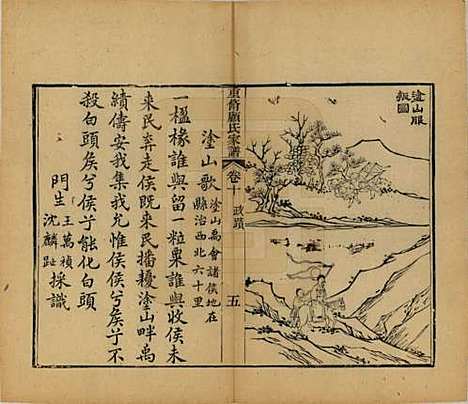 塗山服
叛圖
重脩顧氏家譜 卷十 政蹟 五
塗山歌 塗山禹會諸侯地在
縣治西北六十里
一楹椽誰與留一粒粟誰與收侯未
來民弃走侯既來民播耰塗山畔禹
績儔安我集我允惟侯侯兮矣乎不
殺白頭矣兮侯乎能化白頭
門生 王萬禎
沈麟趾 採識